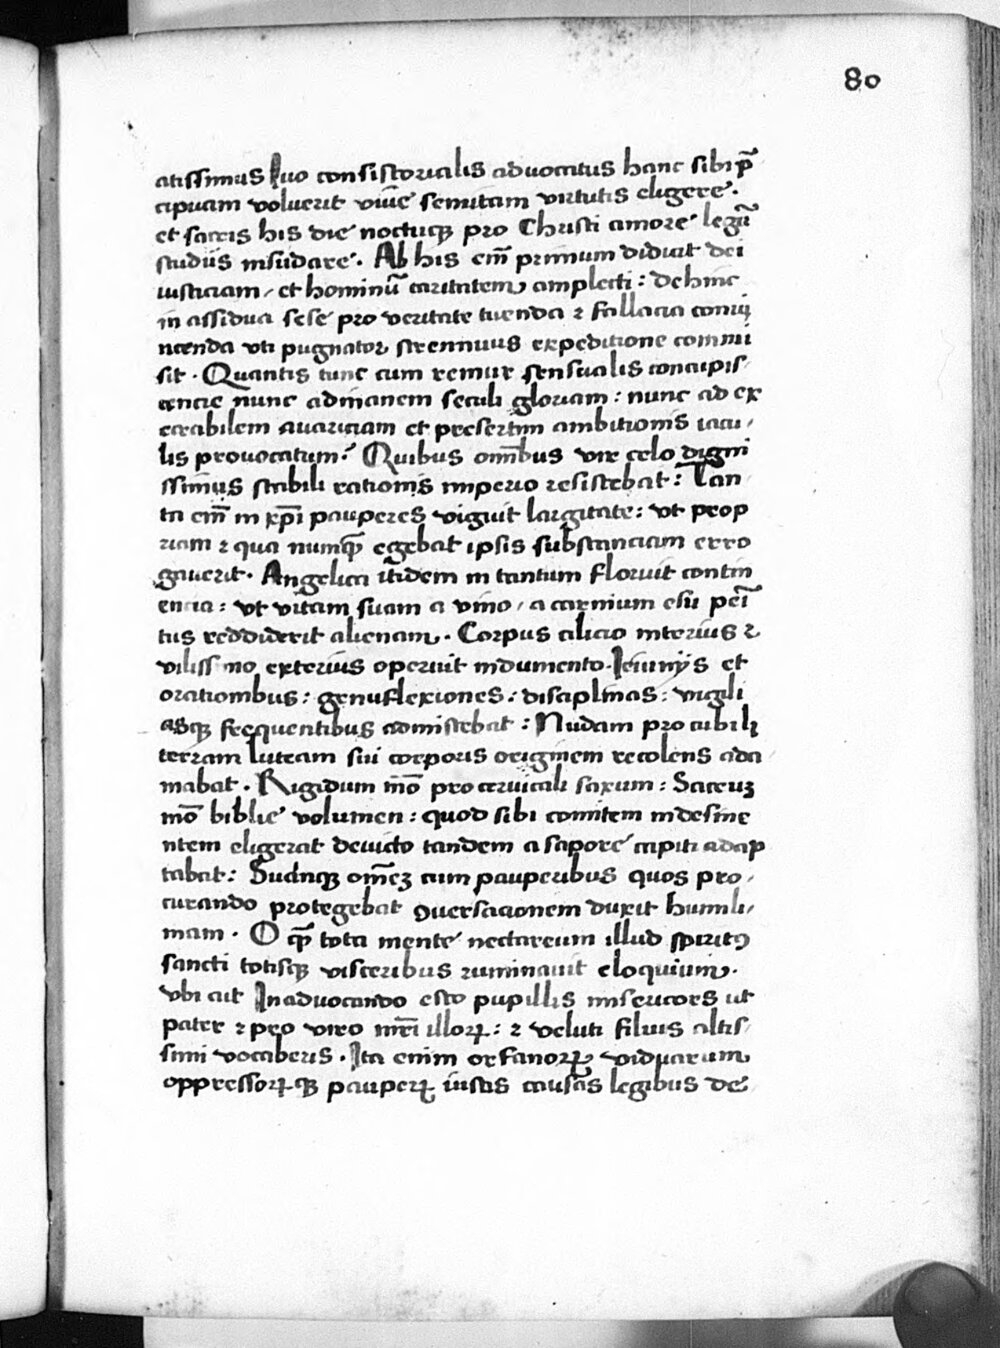 80
atissimus Iuo consistorialis aduocatus hanc sibi p̄
cipuam voluerit viuẽ semitam virtutis eligere.
et sacris his die noctuqꝫ pro Christi amore legũ
studiis insudare. Ab his em̃ primum didicit dei
iusticiam, et hominũ caritatem amplecti: dehinc
in assidua sese pro veritate tuenda ⁊ fallacia conuī
ncenda vti pugnator strennuus expeditione commi
sit. Quantis tunc cum remur sensualis concupis,
cencie nunc ad inanem seculi gloriam: nunc ad ex
ecrabilem auariciam et presertim ambitionis iacu,
lis prouocatum. Quibus om̃ibus vir celo digni
ssim̃us stabili rationis imperio resistebat: Tan
ta em̃ in xp̃i pauperes viguit largitate: vt prop
riam ⁊ qua numqꝫ egebat ipsis substanciam erro
gauerit. Angelica itidem in tantum floruit contin
encia: vt vitam suam a vino, a carnium esu peñi
tus reddiderit alienam. Corpus cilicio interius ⁊
vilissimo exterius operuit indumento. Ieiunijs et
orationibus: genuflexiones: disciplinas: vigili
asqꝫ frequentibus admistebat: Nudam pro cubili
terram luteam sui corporis originem recolens ada
mabat. Rigidum m̃o pro ceruicali saxum: Sacrũ
m̃o biblie volumen: quod sibi comitem indesine
ntem eligerat deuicto tandem a sapore capiti adap
tabat: Suamqꝫ om̃eꝫ cum pauperibus quos pro,
curando protegebat ꝯuersacionem duxit humili,
mam. O qꝫ̃ tota mente nectareum illud spiritꝯ
sancti totisqꝫ visceribus ruminauit eloquium.
vbi ait In aduocando esto pupillis misericors ut
pater ⁊ pro viro mr̃i illorꝝ: ⁊ veluti filius altis,
simi vocaberis. Ita enim orfanorꝝ viduarum
oppressorꝝqꝫ pauperꝝ iustas causas legibus de,